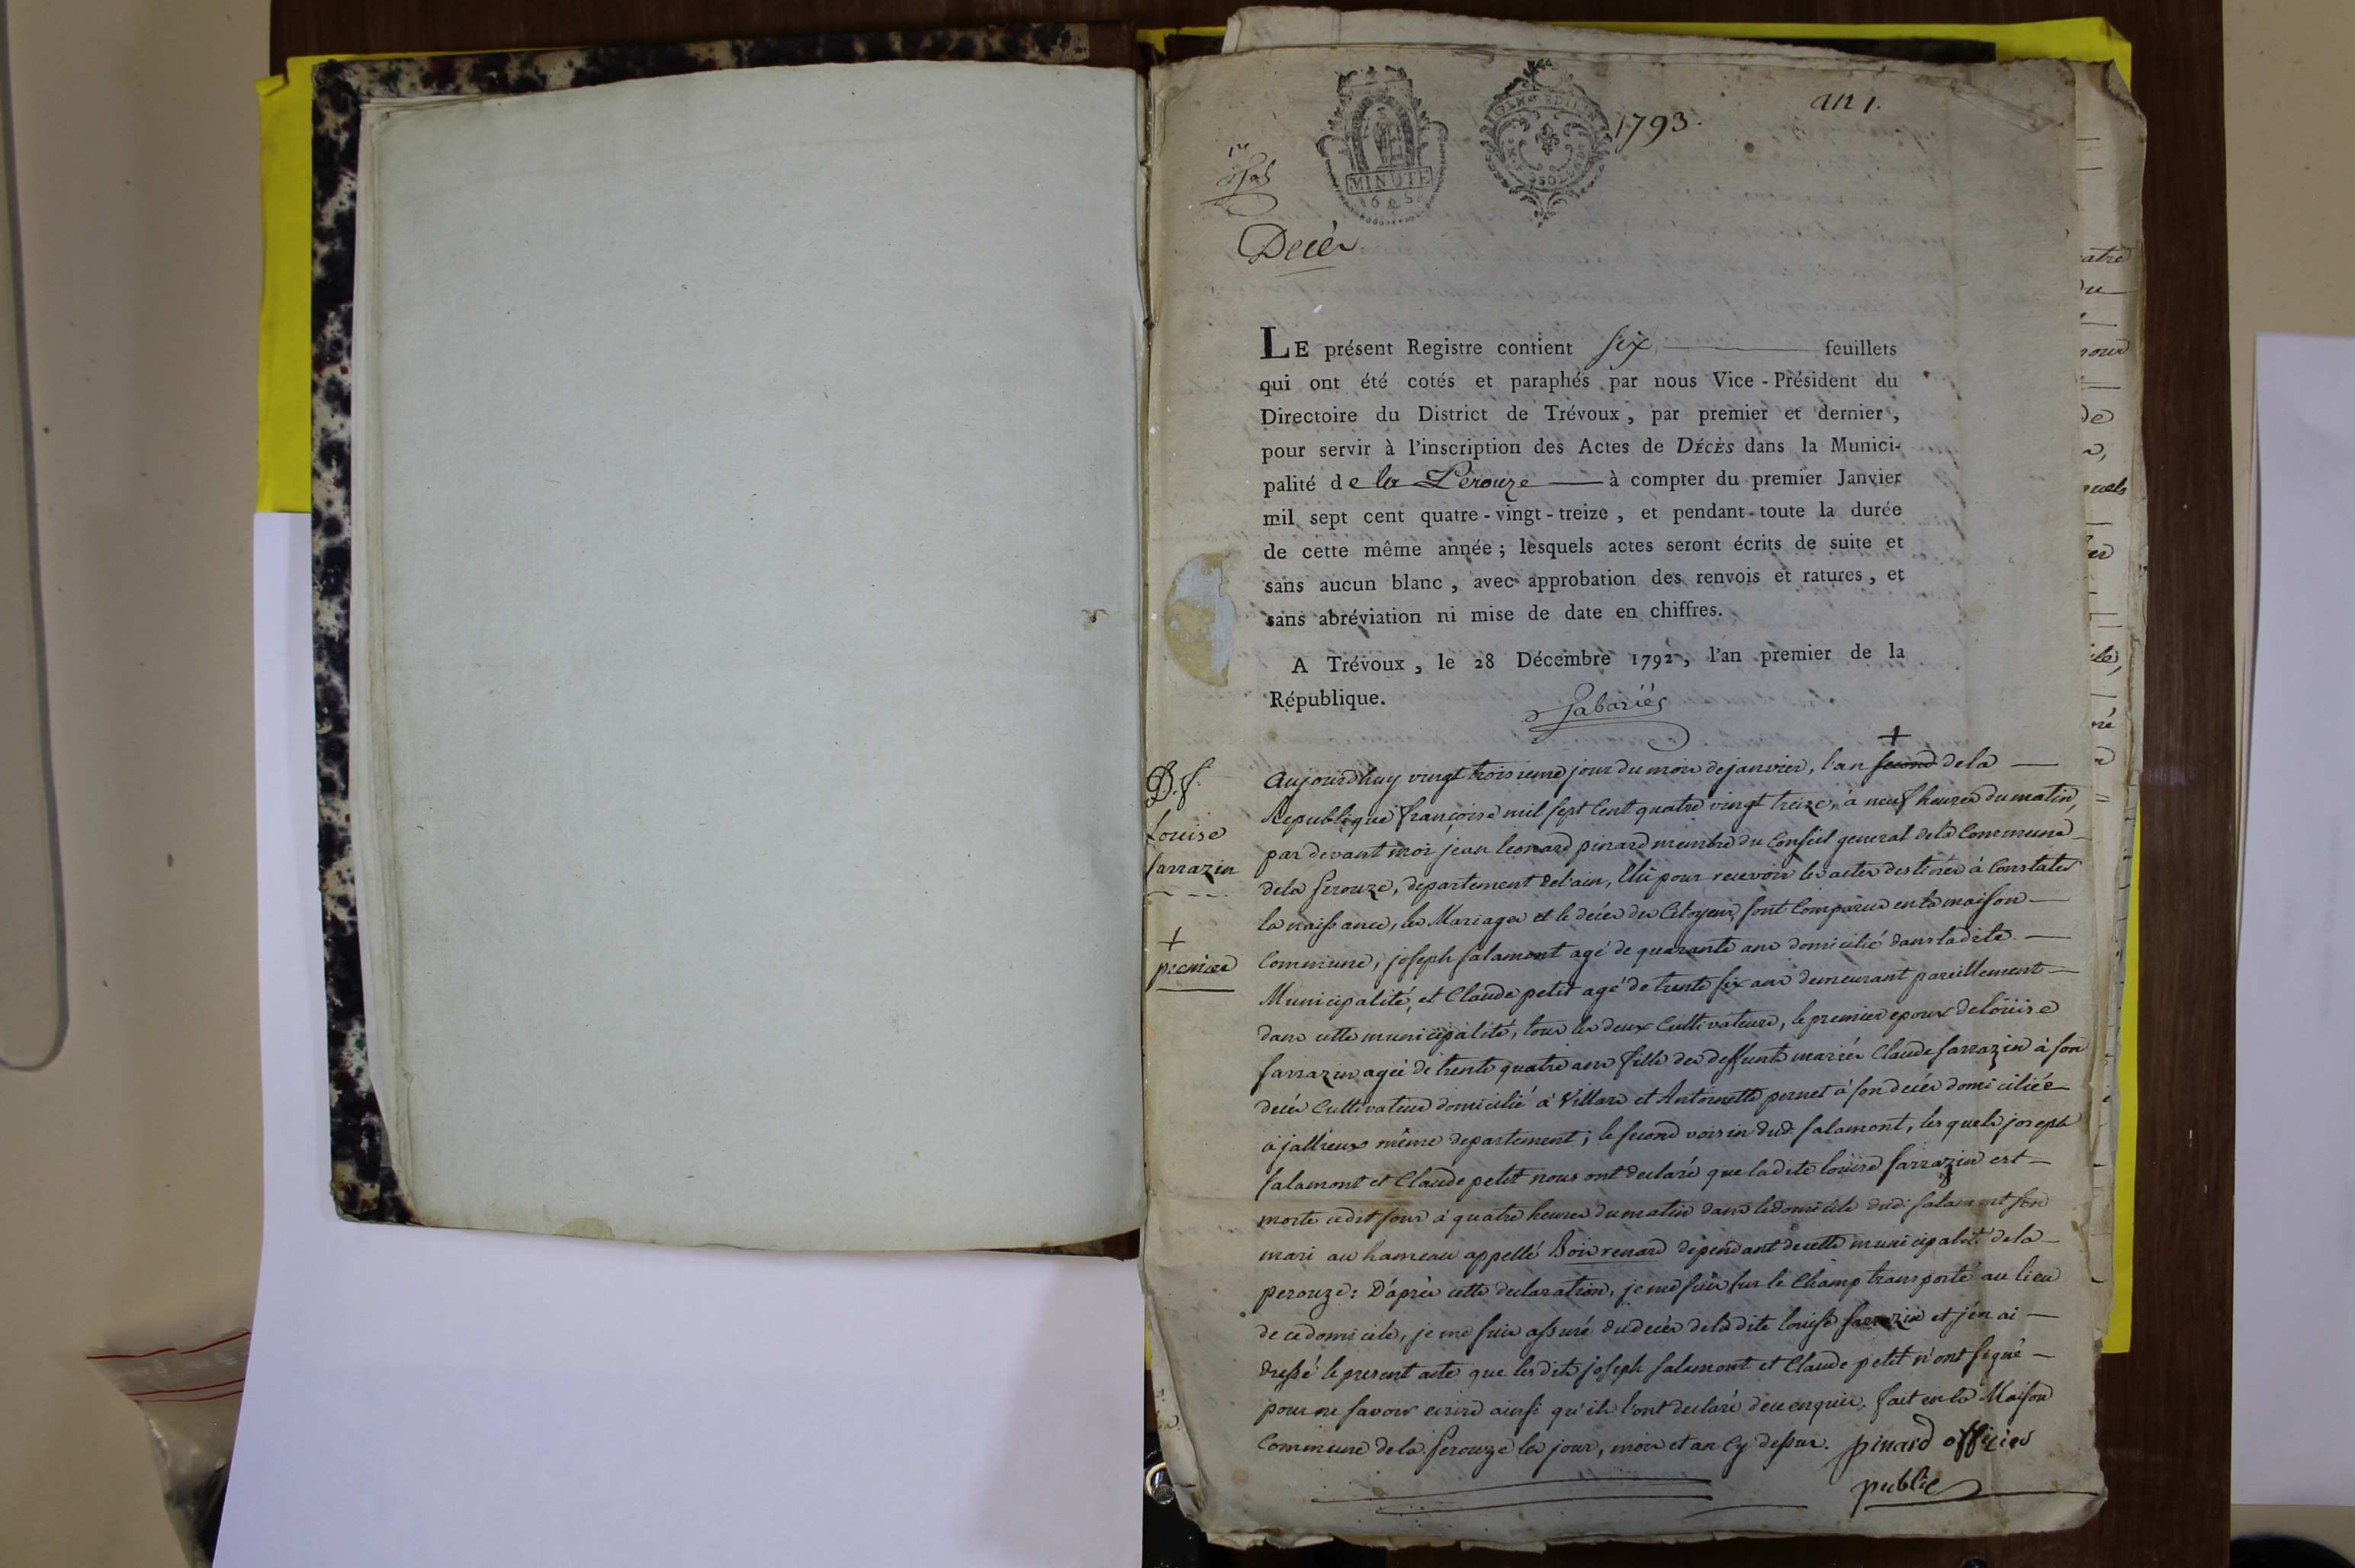 an 1.
1793.
MINUTE
Decès
LE présent Registre contient six feuillets
qui ont été cotés et paraphés par nous Vice-Président du
Directoire du District de Trévoux, par premier et dernier,
pour servir à l'inscription des Actes de DÉCÈS dans la Munici-
palité de la Pérouze à compter du premier Janvier
mil sept cent quatre-vingt-treize, et pendant toute la durée
de cette même année; lesquels actes seront écrits de suite et
sans aucun blanc, avec approbation des renvois et ratures, et
sans abréviation ni mise de date en chiffres.
A Trévoux, le 28 Décembre 1792, l'an premier de la
République.
Jabariés
D. f.
Louise
Sarrazin
+
premier
+
Aujourdhuy vingt troisieme jour du mois de janvier, l'an second de la
Republique françoise mil sept cent quatre vingt treize, à neuf heures du matin,
par devant moi jean leonard pinard membre du Conseil general de la Commune
de la perouze, departement de l'ain, Elû pour recevoir les actes destinés à Constater
la naissance, les Mariages et le decès des Citoyens, sont Comparus en la maison
Commune, joseph salamont agé de quarante ans domicilié dans ladite
Municipalité, et Claude petit agé de trente six ans demeurant pareillement
dans cette municipalité, tous les deux Cultivateurs, le premier epoux de loüise
sarrazin agée de trente quatre ans fille des deffunts mariés Claude sarrazin à son
decès Cultivateur domicilié à Villars et Antoinette pernet à son decès domiciliée
à jallieux même departement; le second voisin dud. salamont, lesquels joseph
salamont et Claude petit nous ont declaré que ladite loüise sarrazin est
morte cedit jour à quatre heures du matin dans le domicile dud. salamont son
mari au hameau appellé Bois renard dépendant de cette municipalité de la
perouze: D'après cette declaration, je me suis sur le Champ transporté au lieu
de ce domicile, je me suis assuré du decès de la dite louise sarrazin et j'en ai
dressé le present acte que lesdits joseph salamont et Claude petit n'ont signé
pour ne savoir ecrire ainsi qu'ils l'ont declaré de ce enquis. fait en la Maison
Commune de la perouze les jour, mois et an cy dessus. pinard officier
public